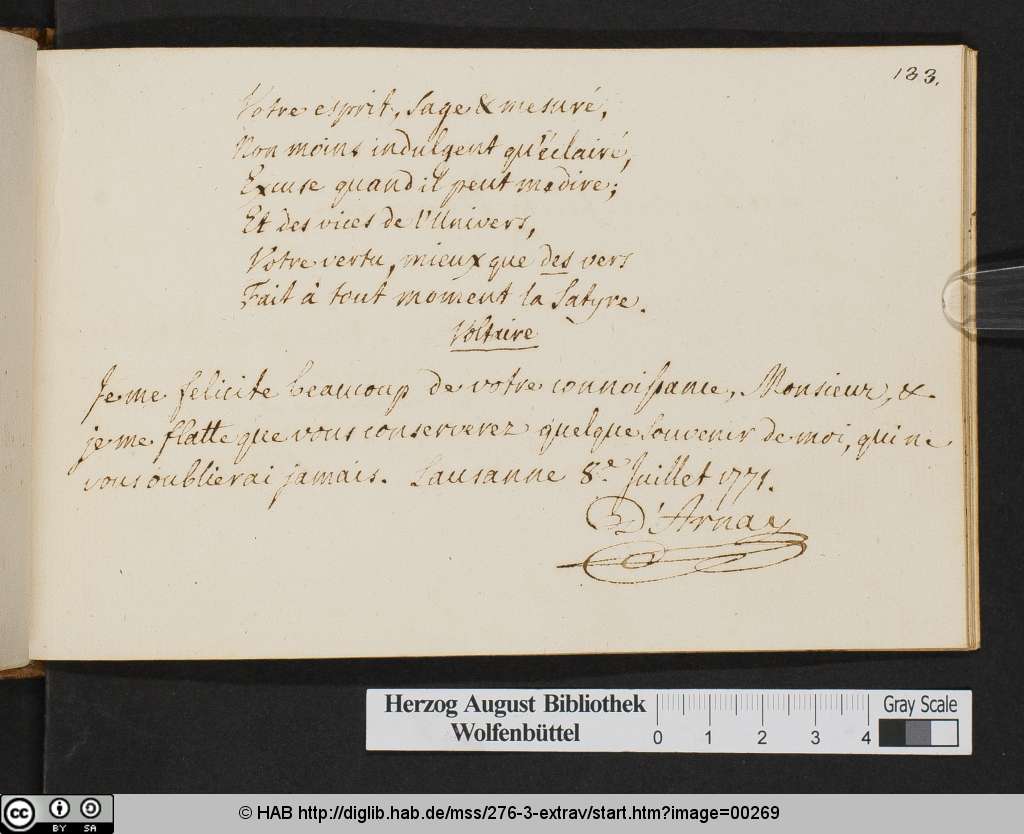 133.
Votre esprit, sage & mesuré,
Non moins indulgent qu'éclairé,
Excuse quand il peut medire;
Et des vices de l'Univers,
Votre vertu, mieux que des vers
Fait à tout moment la Satyre.
Voltaire
Je me felicite beaucoup de votre connoissance, Monsieur, &
je me flatte que vous conserverez quelque souvenir de moi, qui ne
vous oublierai jamais. Lausanne 8.e Juillet 1771.
D'Arnay
Herzog August Bibliothek
Wolfenbüttel
0 1 2 3 4
Gray Scale
cc BY SA
© HAB http://diglib.hab.de/mss/276-3-extrav/start.htm?image=00269